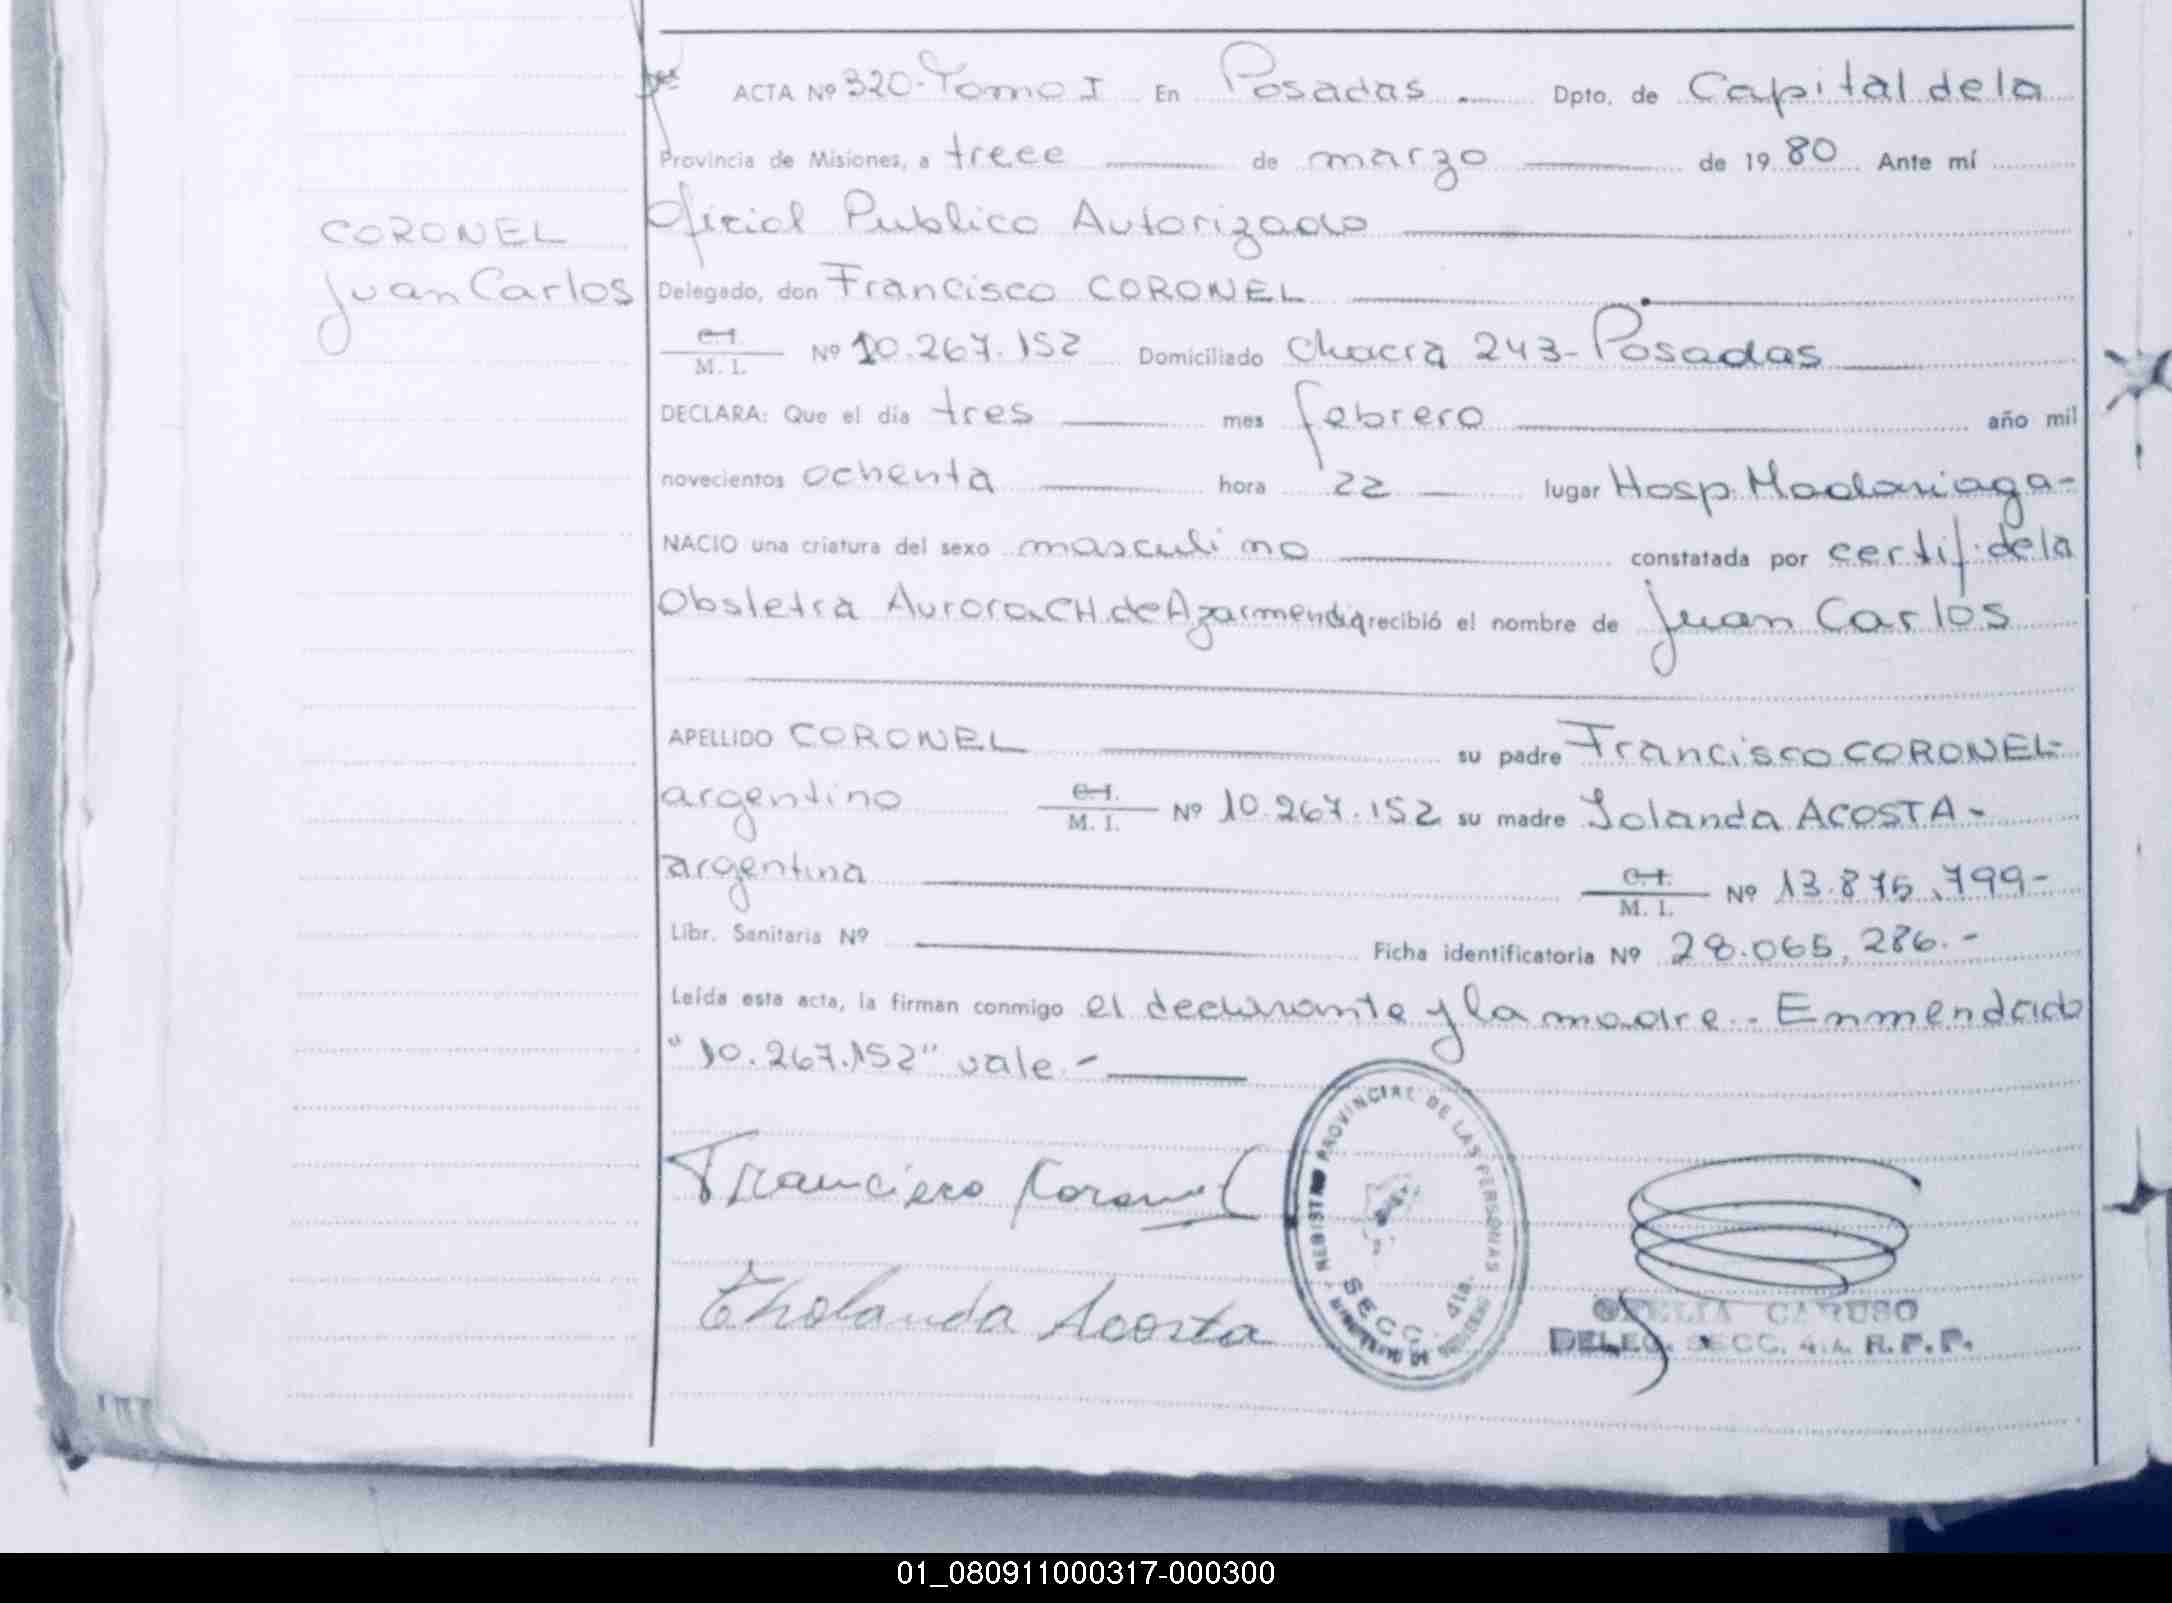 ACTA Nº 320-Tomo I En Posadas Dpto. de Capital de la
Provincia de Misiones, a trece de marzo de 1980 Ante mí
Oficial Publico Autorizado
CORONEL
Juan Carlos
Delegado, don Francisco CORONEL
C.I.
M. I. Nº 10.267.152 Domiciliado Chacra 243-Posadas
DECLARA: Que el día tres mes febrero año mil
novecientos ochenta hora 22 lugar Hosp. Madariaga-
NACIO una criatura del sexo masculino constatada por certif. de la
Obstetra Aurora CH. de Azarmendia recibió el nombre de Juan Carlos
APELLIDO CORONEL su padre Francisco CORONEL-
argentino C.I.
M. I. Nº 10.267.152 su madre Iolanda ACOSTA-
argentina C.I.
M. I. Nº 13.875.799-
Libr. Sanitaria Nº Ficha identificatoria Nº 28.065.286.-
Leída esta acta, la firman conmigo el declarante y la madre.- Enmendado
"10.267.152" vale.-
Francisco Coronel
Tholanda Acosta
PROVINCIAL DE LAS PERSONAS
SECC. 4ta.
OFELIA CARUSO
DELEG. SECC. 4.A. R.P.P.
01_080911000317-000300